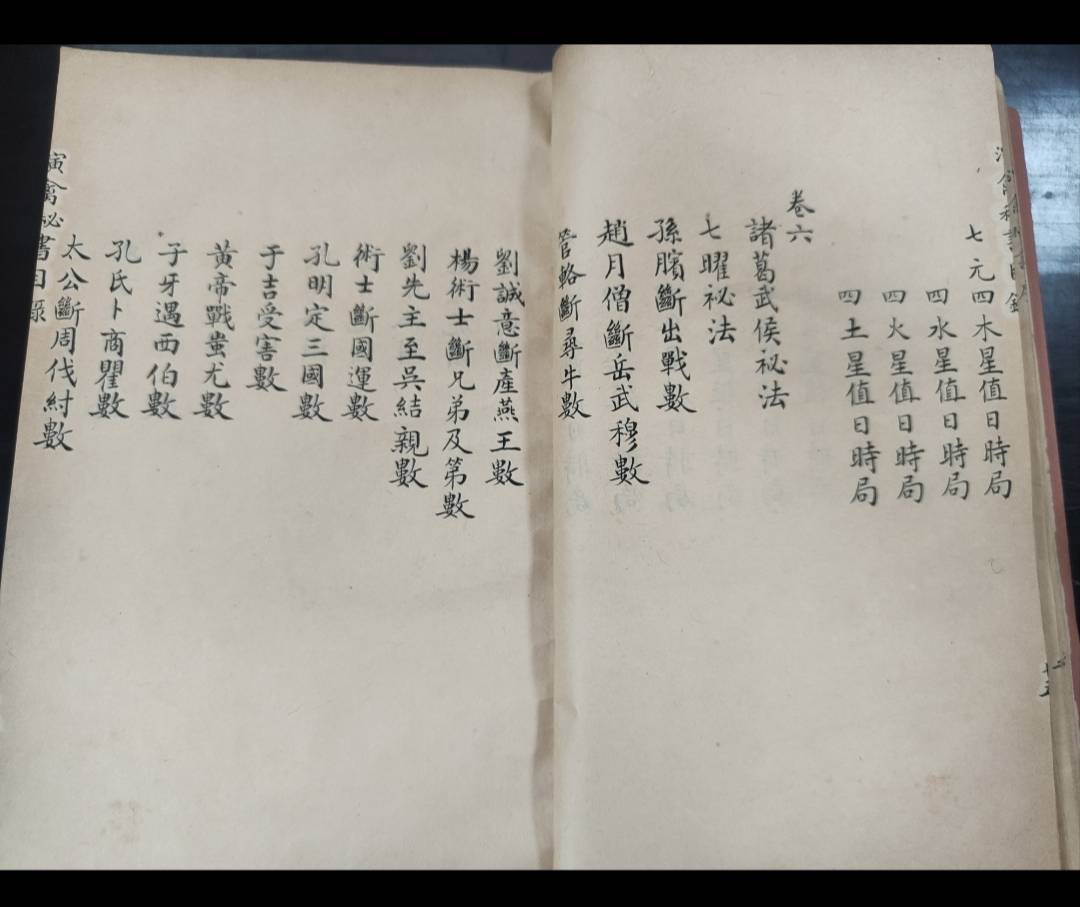 七元四木星值日時局
四水星值日時局
四火星值日時局
四土星值日時局
卷六
諸葛武侯祕法
七曜祕法
孫臏斷出戰數
趙月僧斷岳武穆數
管輅斷尋牛數
劉誠意斷產燕王數
楊術士斷兄弟及第數
劉先主至吳結親數
術士斷國運數
孔明定三國數
于吉受害數
黃帝戰蚩尤數
子牙遇西伯數
孔氏卜商瞿數
太公斷周伐紂數
演禽祕書目錄